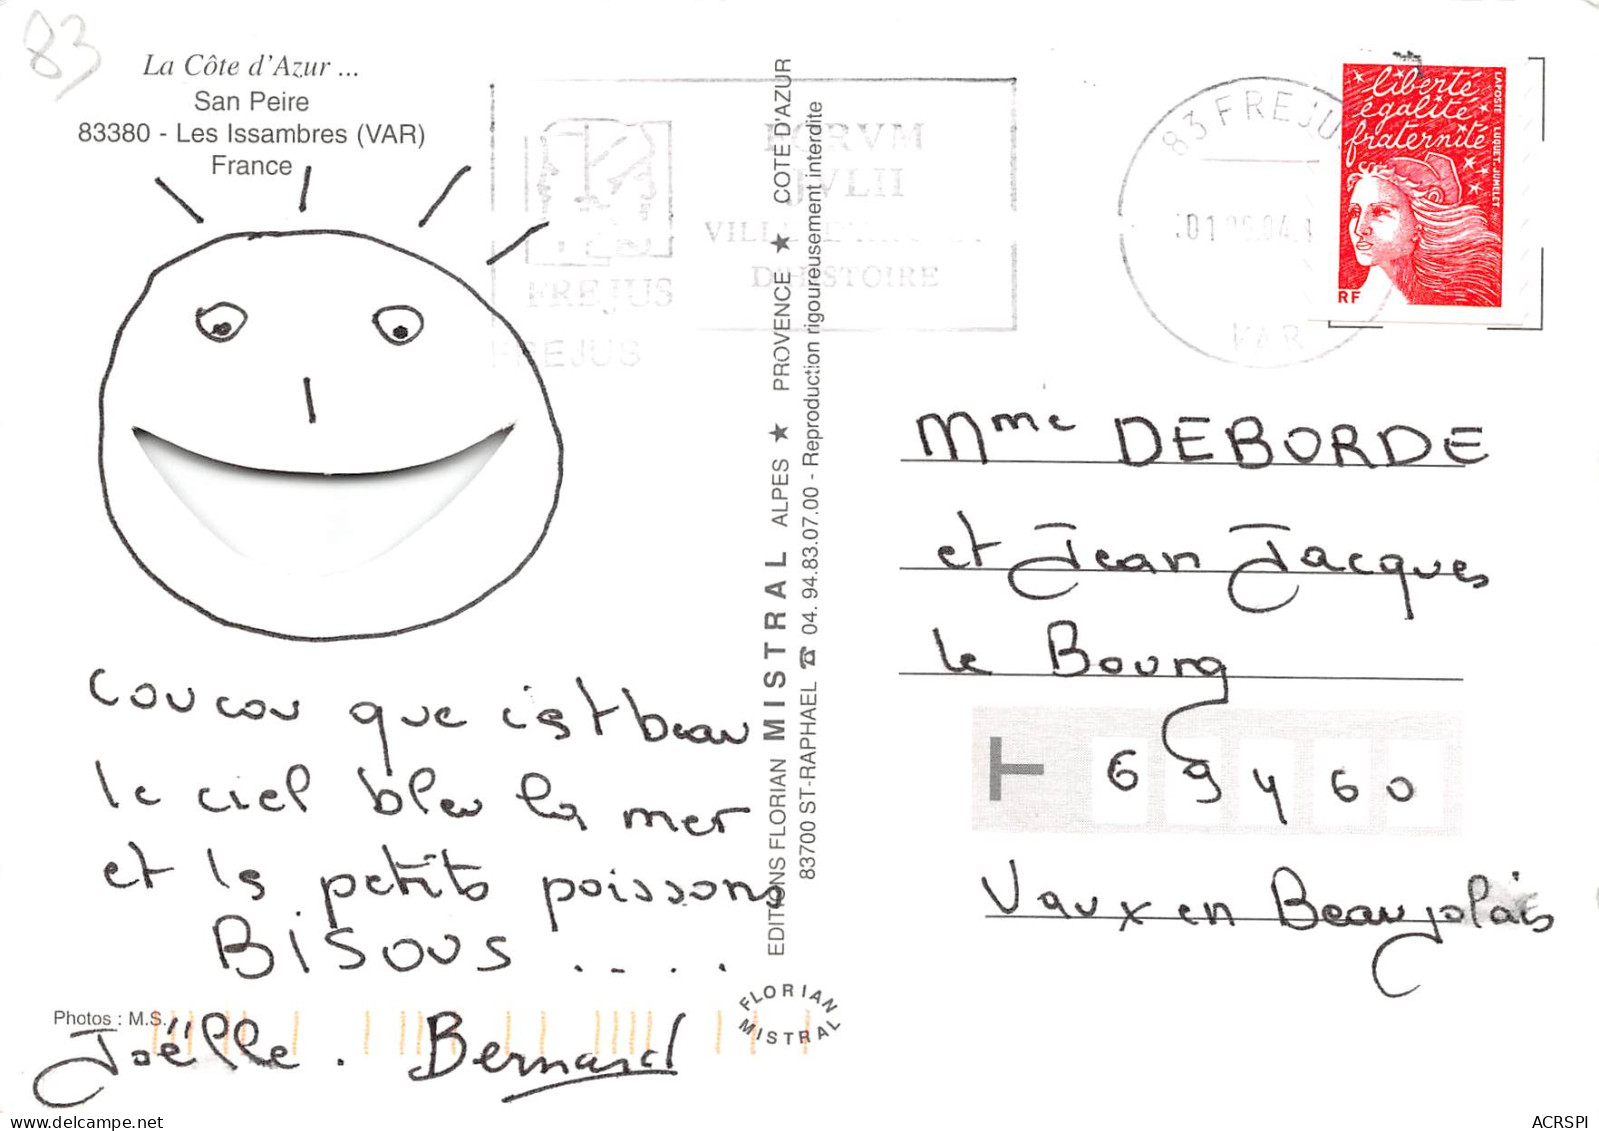 83
La Côte d'Azur ...
San Peire
83380 - Les Issambres (VAR)
France
FORVM
IVLII
D'HISTOIRE
FREJUS
FREJUS
83 FREJU
VAR
liberté
égalité
fraternité
LA POSTE LUQUET-JUMELET
RF
coucou que c'est beau
le ciel bleu la mer
et ls petits poissons
BISOUS ....
Joëlle . Bernard
Photos : M.S.
EDITIONS FLORIAN MISTRAL ALPES ★ PROVENCE ★ COTE D'AZUR
83700 ST-RAPHAEL ☎ 04. 94.83.07.00 - Reproduction rigoureusement interdite
FLORIAN
MISTRAL
Mme DEBORDE
et Jean Jacques
le Bourg
69460
Vaux en Beaujolais
delcampe.net
ACRSPI